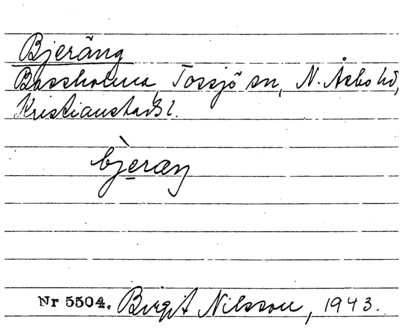 Bjeräng
Bassholma, Tossjö sn, N. Åsbo hd,
Kristianstads l.
bjeräŋ
Nr 5504. Birgit Nilsson, 1943.